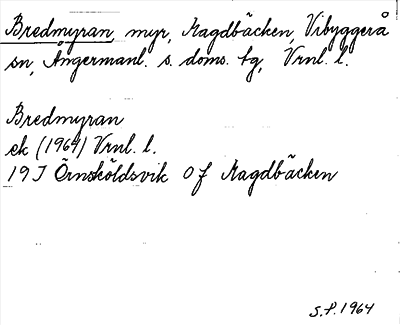 Bredmyran, myr, Nagdbäcken, Vibyggerå
sn, Ångermanl. s. doms. tg, Vrnl. l.
Bredmyran
ek (1964) Vrnl. l.
19 J Örnsköldsvik 0 f Nagdbäcken
S.P. 1964